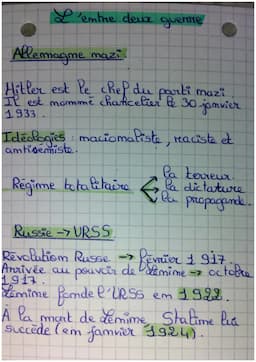 L'entre deux guerre
Allemagne nazi
Hitler est le chef du parti nazi.
Il est nommé chancelier le 30 janvier
1933.
Idéologies : nationaliste, raciste et
antisémiste.
Régime totalitaire
la terreur.
la dictature
la propagande.
Russie → URSS
Révolution Russe → Février 1917.
Arrivée au pouvoir de Lénine → octobre
1917.
Lénine fonde l'URSS en 1922.
À la mort de Lénine, Staline lui
succède (en janvier 1924).